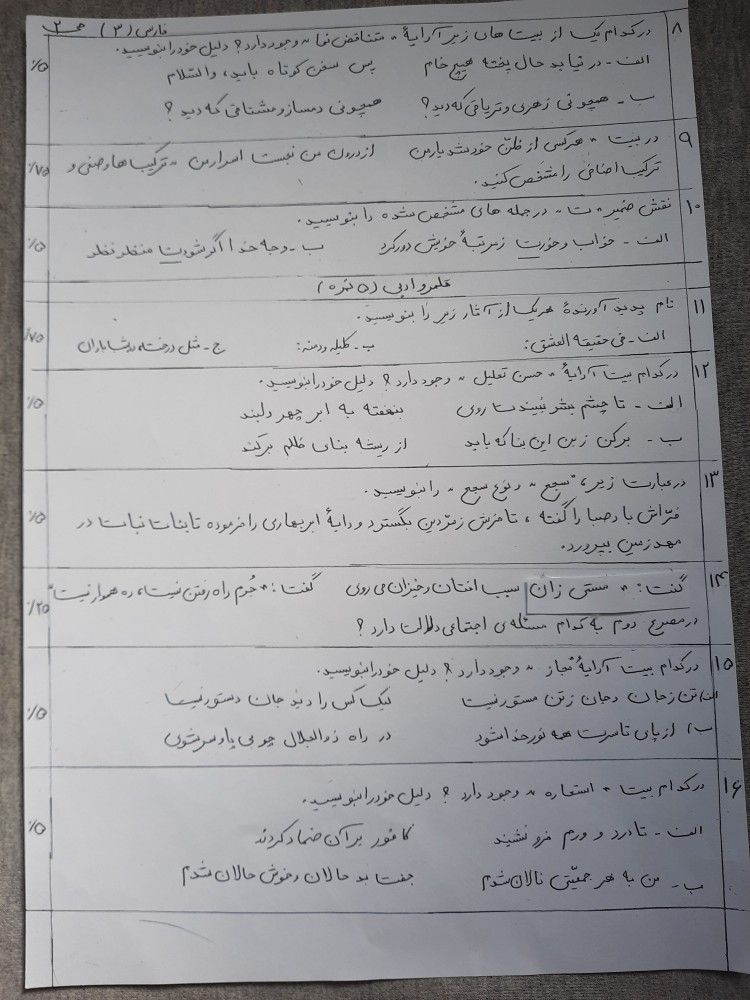 فارسی (۳) ص ۲
۸ در کدام یک از بیت های زیر آرایهٔ « متناقض نما » وجود دارد؟ دلیل خود را بنویسید.
الف - در نیابد حال پخته هیچ خام پس سخن کوتاه باید، والسّلام ۰/۵
ب - همچو نی زهری و تریاقی که دید؟ همچو نی دمساز و مشتاقی که دید؟
۹ در بیت « هر کسی از ظنّ خود شد یار من از درون من نجست اسرار من » ترکیب ها وصفی و ۰/۷۵
ترکیب اضافی را مشخص کنید.
۱۰ نقش ضمیر « ت » در جمله های مشخص شده را بنویسید.
الف - خواب و خورت ز مرتبهٔ خویش دور کرد ب - وجه خدا اگر شودت منظر نظر ۰/۵
قلمرو ادبی (۵ نمره)
۱۱ نام پدید آورندهٔ هر یک از آثار زیر را بنویسید.
الف - فی حقیقه العشق: ب - کلیله و دمنه: ج - مثل درخت، در شب باران ۰/۷۵
۱۲ در کدام بیت آرایهٔ « حسن تعلیل » وجود دارد؟ دلیل خود را بنویسید.
الف - تا چشم بشر نبیندت روی بنهفته به ابر چهر دلبند ۰/۵
ب - برکن ز بن این بنا که باید از ریشه بنای ظلم برکند
۱۳ در عبارت زیر، « سجع » و نوع سجع » را بنویسید.
فرّاش باد صبا را گفته ، تا فرش زمرّدین بگسترد و دایهٔ ابر بهاری را فرموده تا بنات نبات در ۰/۵
مهد زمین بپرورد.
۱۴ گفت: « مستی زان سبب افتان و خیزان می روی گفت: « جُرم راه رفتن نیست، ره هموار نیست» ۰/۲۵
در مصرع دوم به کدام مسئله ی اجتماعی دلالت دارد؟
۱۵ در کدام بیت آرایهٔ « مجاز » وجود دارد؟ دلیل خود را بنویسید.
الف) تن ز جان و جان ز تن مستور نیست لیک کس را دید جان دستور نیست ۰/۵
ب) از پای تا سرت همه نور خدا شود در راه ذوالجلال چو بی پا و سر شوی
۱۶ در کدام بیت « استعاره » وجود دارد؟ دلیل خود را بنویسید.
الف - تا درد و ورم فرو نشیند کافور بر آن ضماد کردند ۰/۵
ب - من به هر جمعیّتی نالان شدم جفت بد حالان و خوش حالان شدم